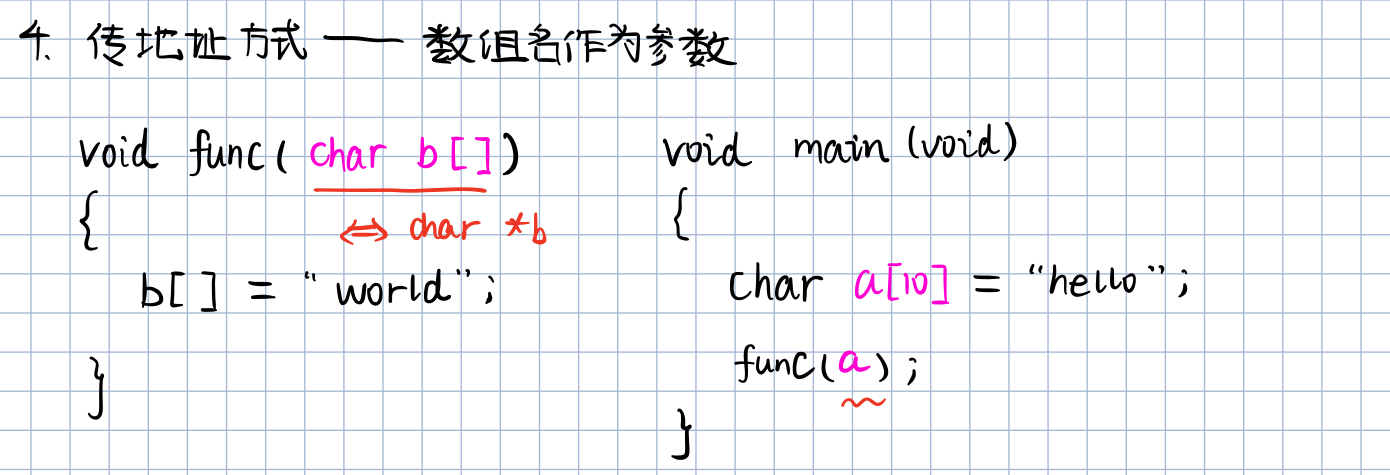 4. 传地址方式 —— 数组名作为参数
void func( char b[])
{
⇔ char *b
b[ ] = "world";
}
void main (void)
{
char a[10] = "hello";
func(a);
}